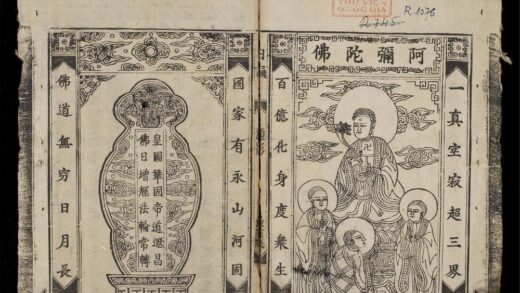 THƯ VIỆN
QUỐC GIA
R.1076
阿彌陀佛
一真空寂超三界
百億化身度衆生
卍
國家有永山河固
皇圖鞏固帝道遐昌
佛日增輝法輪常轉
佛道無窮日月長